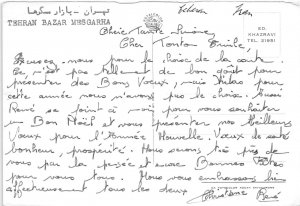 تهران - بازار مسگرها
TEHRAN BAZAR MESGARHA
Téhéran Iran
ED. KHAZRAVI
TEL. 31981
Chère Tante Simone,
Cher Tonton Emile,
Excusez-nous pour le choix de la carte
Ce n'est pas tellement de bon goût pour
présenter des Bons Voeux mais hélas
cette année nous n'avons pas le choix.
René se joint à moi pour vous souhaiter
un Bon Noël et vous présenter nos Meilleurs
Voeux pour l'Année Nouvelle. Voeux de santé
bonheur, prospérité. Nous serons très près de
vous par la pensée et encore Bonnes Fêtes
pour vous tous. Nous vous embrassons bien
affectueusement tous les deux
Christiane René